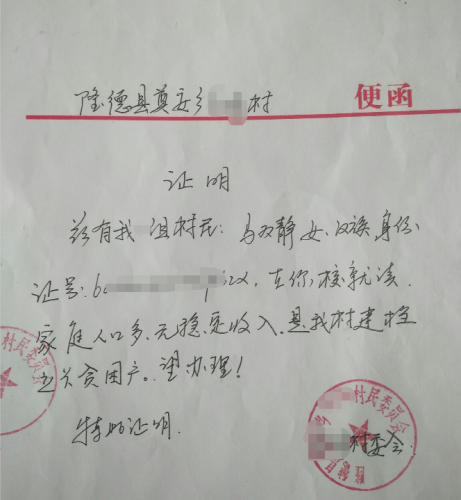 隆德县奠安乡 村
便函
证明
兹有我 组村民:马双静女、汉族身份
证号:6 2X,在你校就读.
家庭人口多、无稳定收入,是我村建档
立卡贫困户。望办理!
特此证明.
村委会
村民委员会
村民委员会